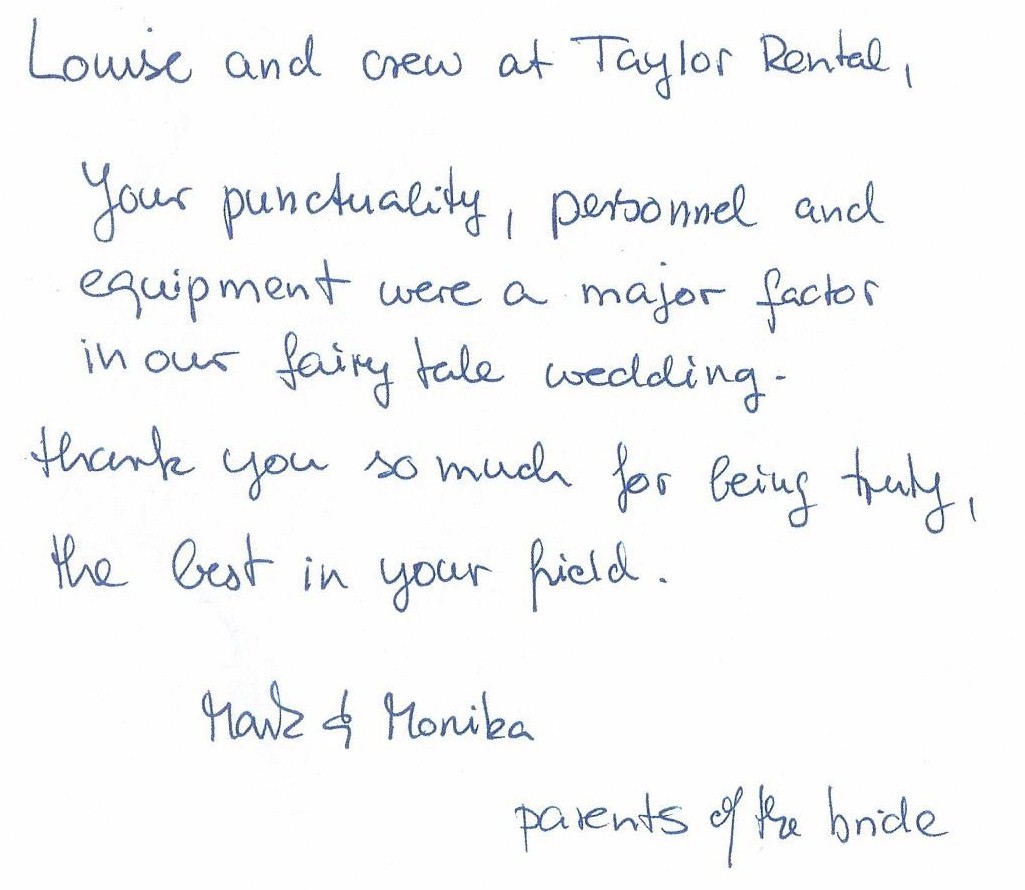 Louise and crew at Taylor Rental,
Your punctuality, personnel and
equipment were a major factor
in our fairy tale wedding.
thank you so much for being truly,
the best in your field.
Mark & Monika
parents of the bride